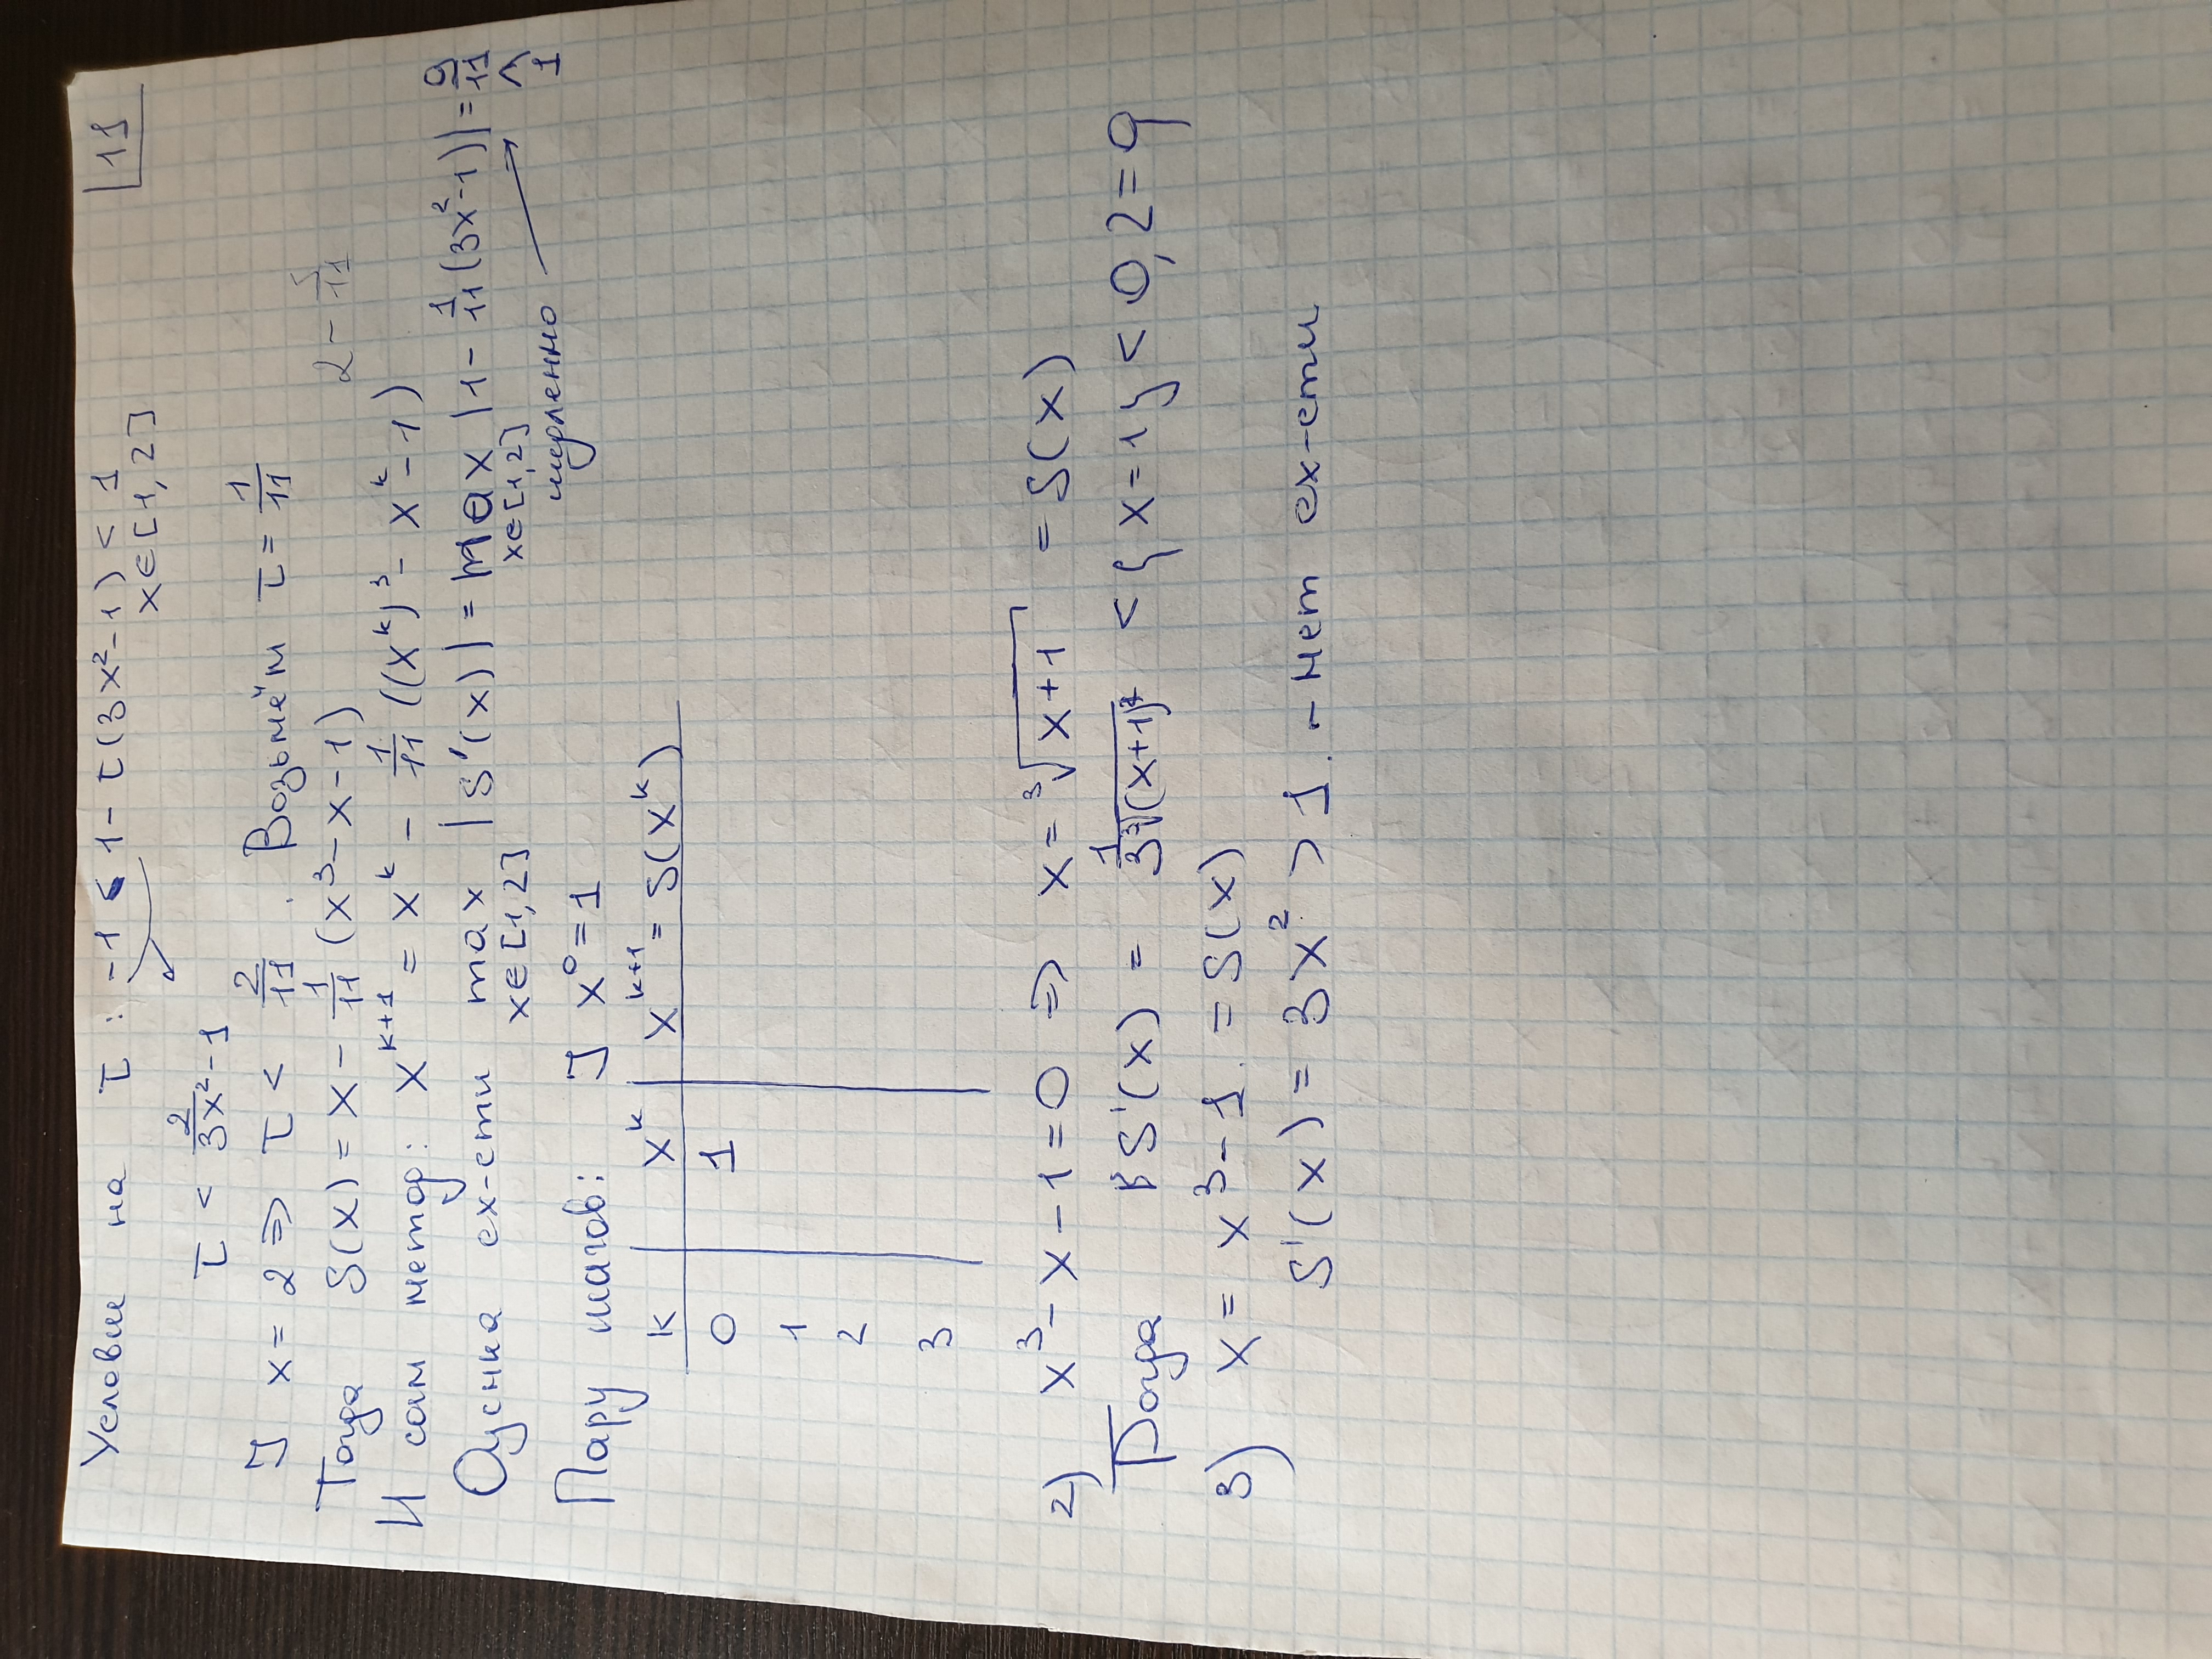 11
Условие на τ: -1 < 1 - τ(3x² - 1) < 1
x∈[1,2]
τ < 2/(3x² - 1)
] x = 2 => τ < 2/11 . Возьмём τ = 1/11
Тогда S(x) = x - 1/11 (x³ - x - 1)
И сам метод: x^{k+1} = x^k - 1/11 ((x^k)³ - x^k - 1)
Оценка сх-сти max_{x∈[1,2]} |S'(x)| = max_{x∈[1,2]} |1 - 1/11 (3x² - 1)| = 9/11 < 1
медленно
Пару шагов: ] x⁰ = 1
k x^k x^{k+1} = S(x^k)
0 1
1
2
3
2) x³ - x - 1 = 0 => x = ∛(x+1) = S(x)
Тогда S'(x) = 1/(3∛(x+1)²) < {x=1} < 0,2 = q
3) x = x³ - 1 . = S(x)
S'(x) = 3x² > 1 . - нет сх-сти